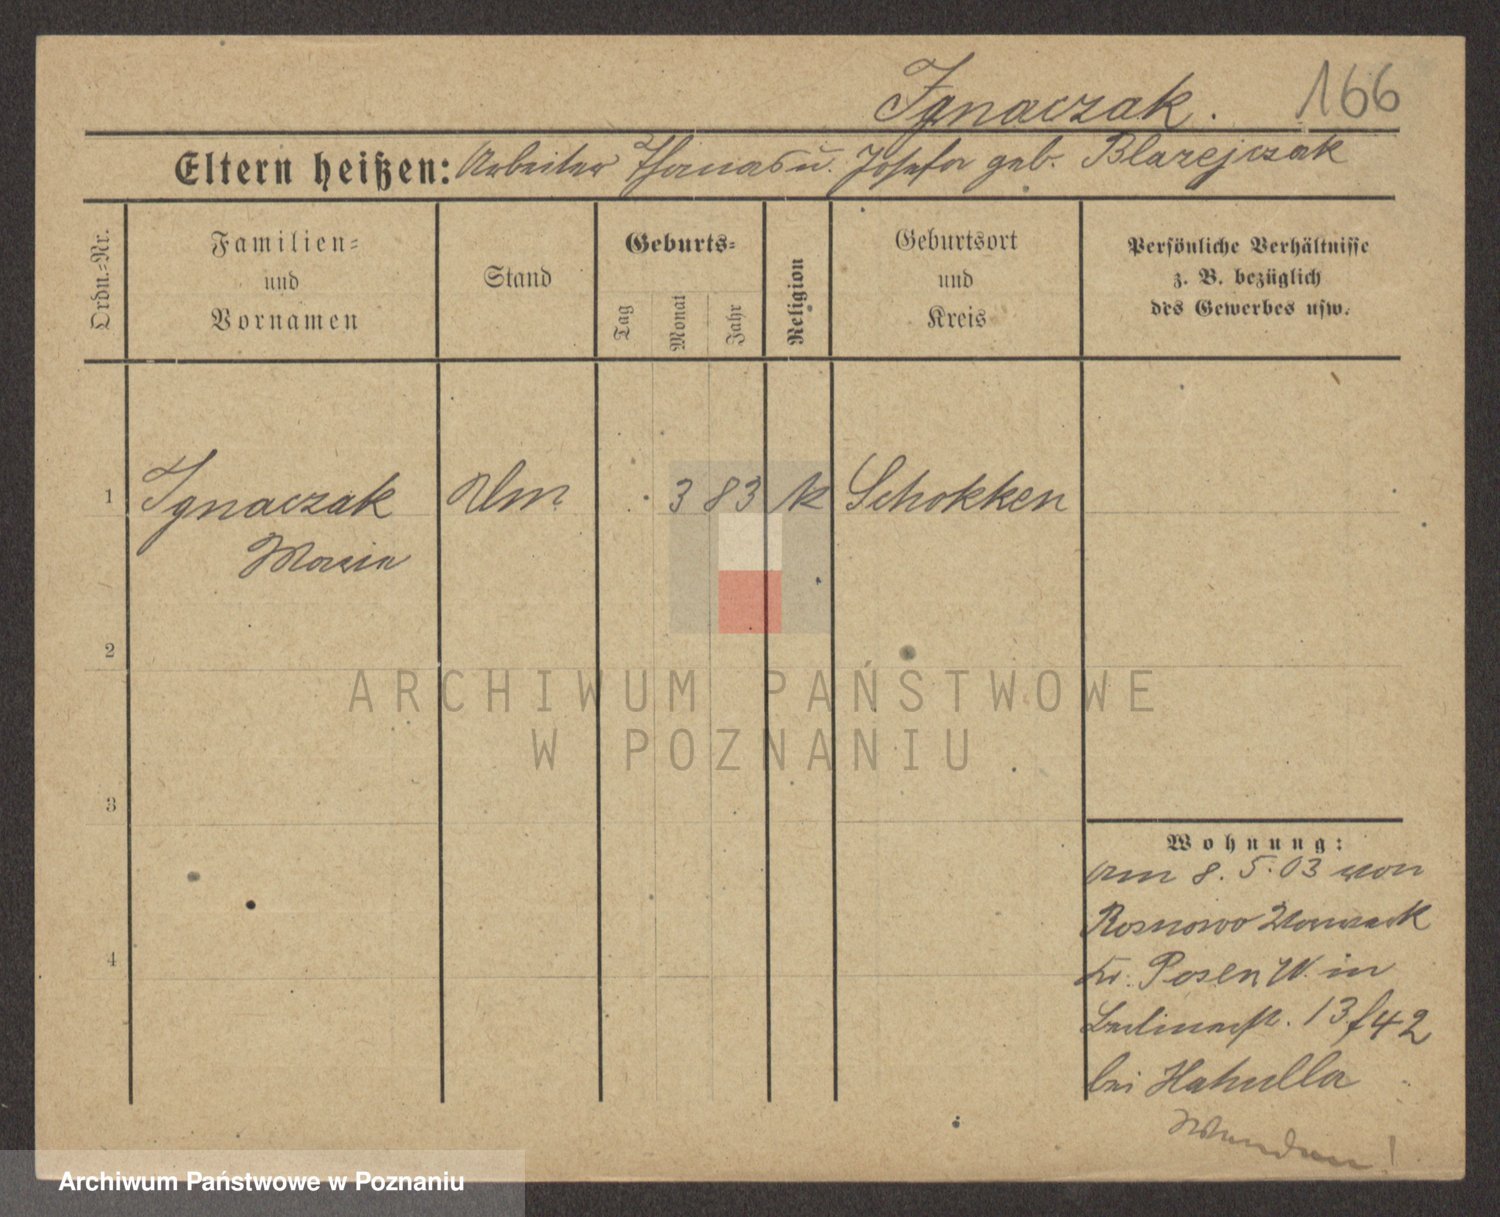 Ignaczak.
166
Eltern heißen: Arbeiter Thomas u. Josefa geb. Blazejczak
Ordn.=Nr.
Familien=
und
Vornamen
Stand
Geburts=
Tag
Monat
Jahr
Religion
Geburtsort
und
Kreis
Persönliche Verhältnisse
z. B. bezüglich
des Gewerbes usw.
1 Ignaczak 3 83 k Schokken
Maria
2
ARCHIWUM PAŃSTWOWE
W POZNANIU
3
Wohnung:
am 8. 5. 03 von
Rosnowo
Kr. Posen W. in
Berlinerstr. 13 f 42
bei Hahulla
4
Archiwum Państwowe w Poznaniu